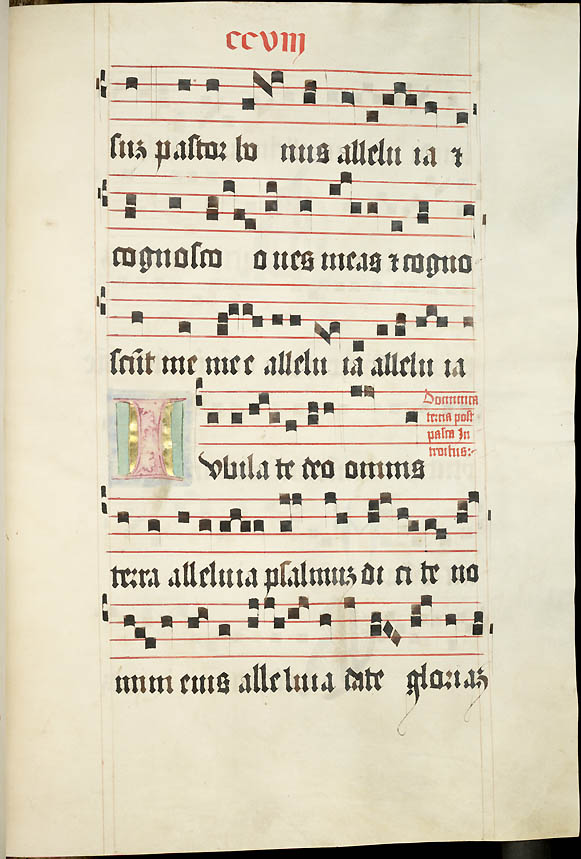 ccviij
suz pastor bo nus allelu ia ⁊
cognosco o ues meas ⁊ cogno
scūt me me e allelu ia allelu ia
Dominica
tercia post
pasca In
troitus:
I vbila te deo omnis
terra alleluia psalmuz di ci te no
mini eius alleluia date gloriaz